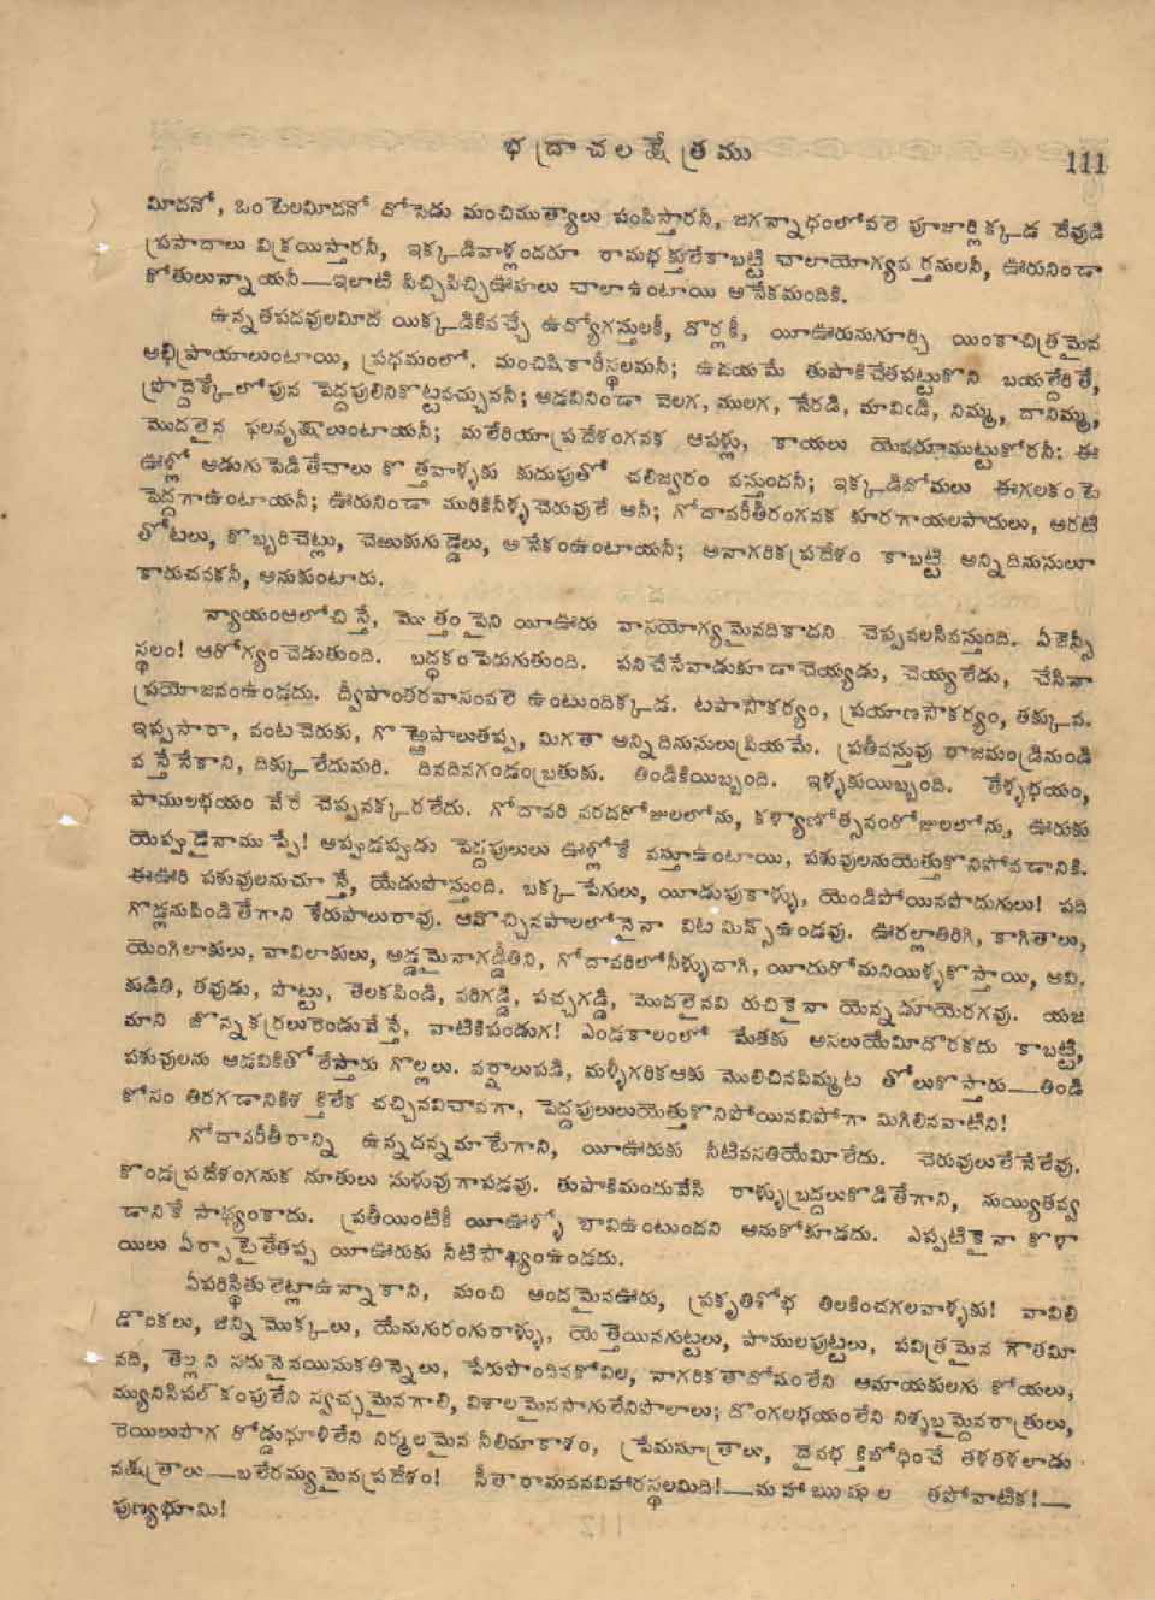 భద్రాచలక్షేత్రము
111
మీదనో, ఒంటెలమీదనో దోసెడు మంచిముత్యాలు పంపిస్తారనీ, జగన్నాధంలోవలె పూజార్లిక్కడ దేవుడి
ప్రసాదాలు విక్రయిస్తారనీ, ఇక్కడివాళ్లందరూ రామభక్తులేకాబట్టి చాలాయోగ్యప్రవర్తనులనీ, ఊరునిండా
కోతులున్నాయనీ—ఇలాటి పిచ్చిపిచ్చిఊహలు చాలాఉంటాయి అనేకమందికి.
ఉన్నతపదవులమీద యిక్కడికివచ్చే ఉద్యోగస్తులకీ, దొర్లకీ, యీఊరునుగూర్చి యింకాచిత్రమైన
అభిప్రాయాలుంటాయి, ప్రథమంలో. మంచిషికారీస్థలమనీ; ఉదయమే తుపాకిచేతపట్టుకొని బయల్దేరితే,
ప్రొద్దెక్కేలోపున పెద్దపులినికొట్టవచ్చుననీ; అడవినిండా వెలగ, ములగ, నేరడి, మావిఁడి, నిమ్మ, దానిమ్మ,
మొదలైన ఫలవృక్షాలుంటాయనీ; మలేరియాప్రదేశంగనక ఆపళ్లు, కాయలు యెవరూముట్టుకోరనీ; ఈ
ఊళ్లో అడుగుపెడితేచాలు కొత్తవాళ్ళకు కుదుపుతో చలిజ్వరం వస్తుందనీ; ఇక్కడిదోమలు ఈగలకంటె
పెద్దగాఉంటాయనీ; ఊరునిండా మురికినీళ్ళచెరువులే అనీ; గోదావరీతీరంగనక కూరగాయలపాదులు, అరటి
తోటలు, కొబ్బరిచెట్లు, చెఱుకుగుడ్డెలు, అనేకంఉంటాయనీ; అనాగరికప్రదేశం కాబట్టి అన్నిదినుసులూ
కారుచవకనీ, అనుకుంటారు.
న్యాయంఆలోచిస్తే, మొత్తంపైని యీఊరు వాసయోగ్యమైనదికాదని చెప్పవలసివస్తుంది. ఏజెన్సీ
స్థలం! ఆరోగ్యంచెడుతుంది. బద్ధకంపెరుగుతుంది. పనిచేసేవాడుకూడాచెయ్యడు, చెయ్యలేడు, చేసినా
ప్రయోజనంఉండదు. ద్వీపాంతరవాసంవలె ఉంటుందిక్కడ. టపాసౌకర్యం, ప్రయాణసౌకర్యం, తక్కువ.
ఇప్పసారా, వంటచెరుకు, గొఱ్ఱెపాలుతప్ప, మిగతా అన్నిదినుసులుప్రియమే. ప్రతీవస్తువు రాజమండ్రినుండి
వస్తేనేకాని, దిక్కులేదుమరి. దినదినగండంబ్రతుకు. తిండికియిబ్బంది. ఇళ్ళకుయిబ్బంది. తేళ్ళభయం,
పాములభయం వేరే చెప్పనక్కరలేదు. గోదావరి వరదరోజులలోను, కళ్యాణోత్సవంరోజులలోను, ఊరుకు
యెప్పుడైనాముప్పే! అప్పుడప్పుడు పెద్దపులులు ఊళ్లోకే వస్తూఉంటాయి, పశువులనుయెత్తుకొనిపోవడానికి.
ఈఊరి పశువులనుచూస్తే, యేడుపొస్తుంది. బక్కపేగులు, యీడుపుకాళ్ళు, యెండిపోయినపొదుగులు! పది
గొడ్లనుపిండితేగాని శేరుపాలురావు. ఆవొచ్చినపాలలోనైనా విటమిన్స్ఉండవు. ఊరల్లాతిరిగి, కాగితాలు,
యెంగిలాకులు, వావిలాకులు, అడ్డమైనాగడ్డీతిని, గోదావరిలోనీళ్ళుదాగి, యీదురోమనియిళ్ళకొస్తాయి, అవి.
కుడితి, తవుడు, పొట్టు, తెలకపిండి, వరిగడ్డి, పచ్చగడ్డి, మొదలైనవి రుచికైనా యెన్నడూయెరగవు. యజ
మాని జొన్నకర్రలురెండువేస్తే, వాటికిపండుగ! ఎండకాలంలో మేతకు అసలుయేమీదొరకదు కాబట్టి,
పశువులను అడవికితోలేస్తారు గొల్లలు. వర్షాలుపడి, మళ్ళీగరికఆకు మొలిచినపిమ్మట తోలుకొస్తారు—తిండి
కోసం తిరగడానికిశక్తిలేక చచ్చినవిచావగా, పెద్దపులులుయెత్తుకొనిపోయినవిపోగా మిగిలినవాటిని!
గోదావరీతీరాన్ని ఉన్నదన్నమాటేగాని, యీఊరుకు నీటివసతియేమీలేదు. చెరువులులేనేలేవు.
కొండప్రదేశంగనుక నూతులు సుళువుగాపడవు. తుపాకిమందువేసి రాళ్ళుబ్రద్దలుకొడితేగాని, నుయ్యితవ్వ
డానికే సాధ్యంకాదు. ప్రతీయింటికీ యీఊళ్ళో బావిఉంటుందని అనుకోకూడదు. ఎప్పటికైనా కొళా
యిలు ఏర్పాటైతేతప్ప యీఊరుకు నీటిసౌఖ్యంఉండదు.
ఏపరిస్థితులెట్లాఉన్నాకాని, మంచి అందమైనఊరు, ప్రకృతిశోభ తిలకించగలవాళ్ళకు! వావిలి
డొంకలు, జిన్నిమొక్కలు, యేనుగురంగురాళ్ళు, యెత్తెయినగుట్టలు, పాములపుట్టలు, పవిత్రమైన గౌతమీ
నది, తెల్లని సన్ననైనయిసుకతిన్నెలు, పేరుపొందినకోవిల, నాగరికతాదోషంలేని అమాయకులగు కోయలు,
మ్యునిసిపల్ కంపులేని స్వచ్ఛమైనగాలి, విశాలమైనసాగులేనిపొలాలు; దొంగలభయంలేని నిశ్శబ్దమైనరాత్రులు,
రెయిలుపొగ రోడ్డుధూళిలేని నిర్మలమైన నీలిమాకాశం, ప్రేమసూత్రాలు, దైవభక్తిబోధించే తళతళలాడు
నక్షత్రాలు—బలేరమ్యమైనప్రదేశం! సీతారామవనవిహారస్థలమిది!—మహాఋషుల తపోవాటిక!—
పుణ్యభూమి!